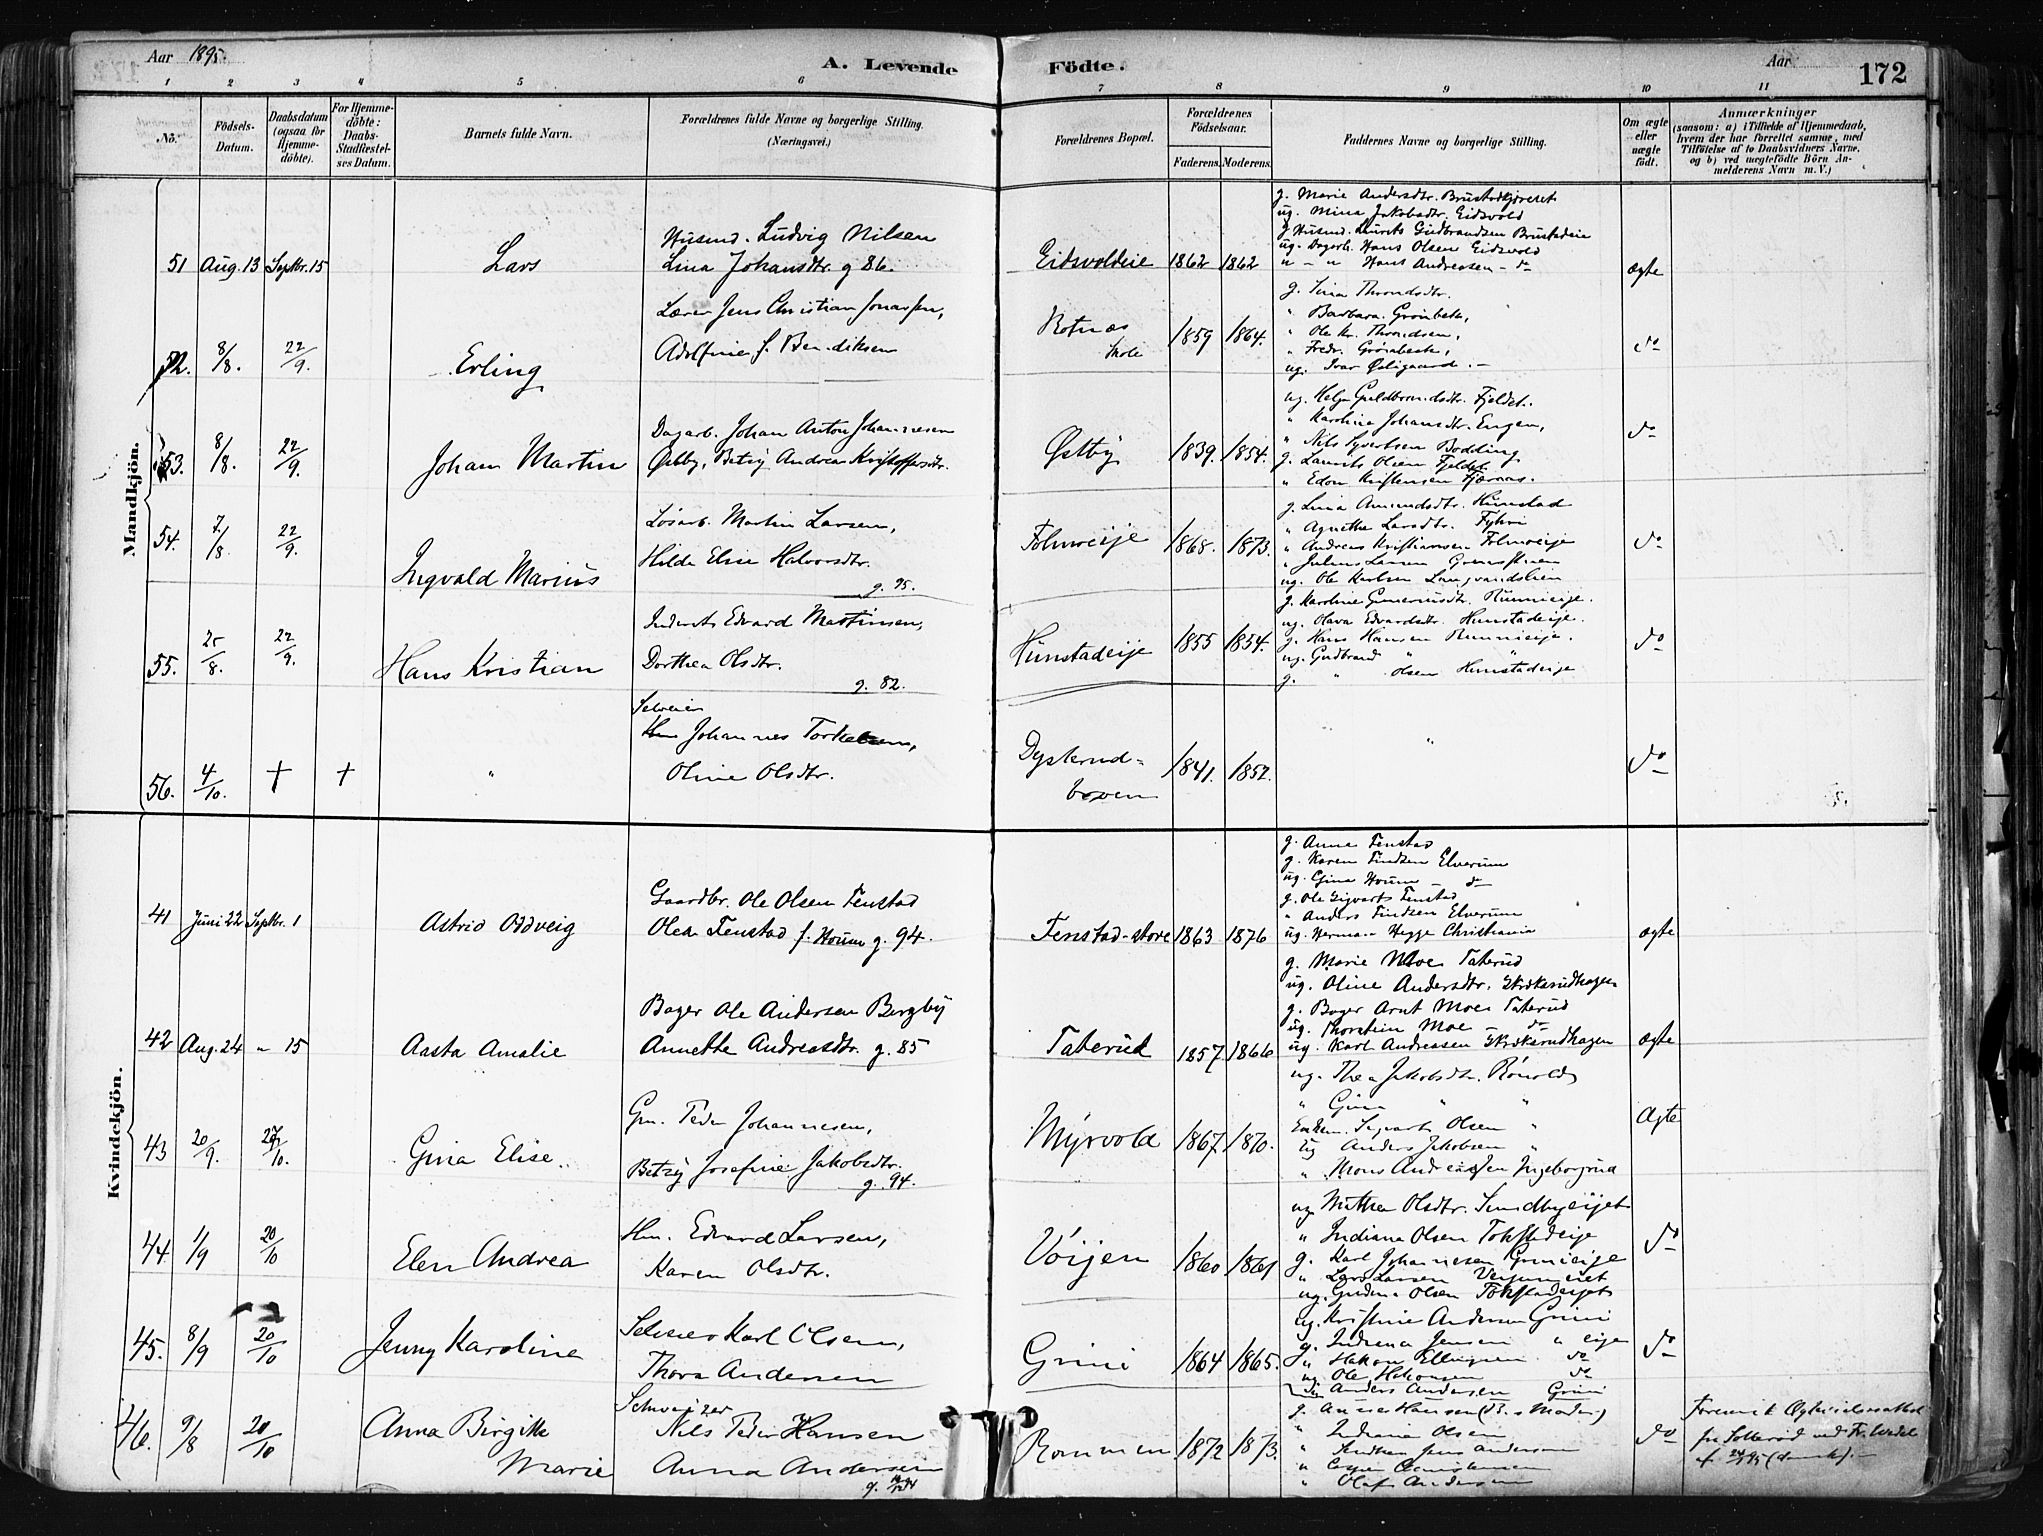 Aar 1895.
A. Levende Födte.
Aar
172
1 2 3 4 5 6 7 8 9 10 11
No.
Födsels-Datum.
Daabsdatum (ogsaa for Hjemmedöbte).
For Hjemmedöbte: Daabs-Stadfæstelses Datum.
Barnets fulde Navn.
Forældrenes fulde Navne og borgerlige Stilling. (Næringsvei.)
Forældrenes Bopæl.
Forældrenes Födselsaar.
Faderens. Moderens.
Faddernes Navne og borgerlige Stilling.
Om ægte eller uægte födt.
Anmærkninger
(saasom: a) i Tilfælde af Hjemmedaab,
hvem der har forrettet samme, med
Tilföielse af to Daabsvidners Navne,
og b) ved uægtefödte Börn Anmelderens Navn m. V.)
Mandkjön.
g. Marie Andersdtr. Brustadkjæret
ug. Mina Jakobsdtr. Eidsvold
g. Husmd. Laurits Gudbrandsen Brustadeie
ug. Dagarb. Hans Olsen Eidsvold
" - " Hans Andreasen - do
51 Aug. 13 Septbr. 15 Lars
Husmd. Ludvig Nilsen
Lina Johansdtr. g 86.
Eidsvoldeie 1862 1862 ægte
52. 8/8. 22/9. Erling
Lærer Jens Christian Jonassen,
Adolfine f. Bendiksen
Rotnæs Skole 1859 1864. do
g. Lina Throndsdtr.
" Barbara Grønbeck,
" Ole Kr. Throndsen,
" Fredr. Grønbeck,
ug. Ivar Østigaard. -
53. 8/8. 22/9. Johan Martin
Dagarb. Johan Anton Johannesen
Østby, Betsy Andrea Kristoffersdtr.
Østby 1839. 1854. do
ug. Helga Guldbrandsdtr. Fjeldet.
" Karoline Johansdtr. Engen,
" Nils Syvertsen Bodding
g. Laurits Olsen Fjeldet
" Edon Kristensen
54. 7/8 22/9. Ingvald Marius
Løsarb. Martin Larsen,
Hilda Elise Halvorsdtr.
g. 95.
1868. 1873. do
g. Lina Amundsdtr. Hunstad
" Agnethe Larsdtr.
" Andreas Kristiansen
" Julius Larsen
ug. Ole Karlsen
55. 25/8. 22/9. Hans Kristian
Inderst Edvard Martinsen,
Dorthea Olsdtr.
g. 82.
Hunstadeije 1855 1854. do
g. Karoline Guneriusdtr.
ug. Olava Edvardsdtr. Hunstadeije.
g. Hans Hansen
ug. Gudbrand " "
g. " Olsen Hunstadeije
56. 4/10. + + "
Selveier
Johannes Torkelsen,
Oline Olsdtr.
Dysterud-
boven 1841. 1852. " do
Kvindekjön.
41 Juni 22 Septbr. 1 Astrid Oddveig
Gaardbr. Ole Olsen Fenstad
Olea Fenstad f. Houm g. 94.
Fenstad-store 1863 1876 ægte
g. Anna Fenstad
g. Karen Findsen Elverum
ug. Gina Houm do
g. Ole Sigvarts Fenstad
" Anders Findsen Elverum
ug. Herman Hegge Christiania
42 Aug. 24 " 15 Aasta Amalie
Bager Ole Andersen Bergby
Annette Andreasdtr. g. 85
Taterud 1857. 1866 ægte
g. Marie Moe Taterud
ug. Oline Andersdtr.
g. Bager Arnt Moe Taterud
ug. Thorstein Moe - do
ug. Karl Andreasen
43 20/9. 27/10. Gina Elise.
Gm. Peder Johannesen,
Betzy Josefine Jakobsdtr.
g. 94.
Myrvold 1867. 1870. Ægte
ug. Thea Jakobsdtr.
" Gina " "
Enkem. Sigvart Olsen "
ug Anders Jakobsen "
" Mons Andreassen Ingeborgrud
44. 1/9 20/10 Elen Andrea
Hm. Edvard Larsen,
Karen Olsdtr.
Vøijen 1860 1861 do
ug. Mathea Olsdtr. Sundbyeijet
" Indiana Olsen
g. Karl Johannesen Grinieije
" Lars Larsen
ug. Gudm. Olsen
45. 8/9 20/10 Jenny Karoline
Selveier Karl Olsen,
Thora Andersen
Grini 1864 1865. do
ug. Kristine Andersen Grini
g. Indiana Jensen " eije
" Hakon Ellingsen do
ug Ole Hakonsen do
Anders Andersen Grini
46. 9/8 20/10 Anna Birgitte
Marie
Schweizer
Nils Peder Hansen
Anna Andersen
Rommen 1872 1873. do
g. Anne Hansen (B.s Moder)
" Indiana Olsen
" Jens Andersen
" Olaf Andersen